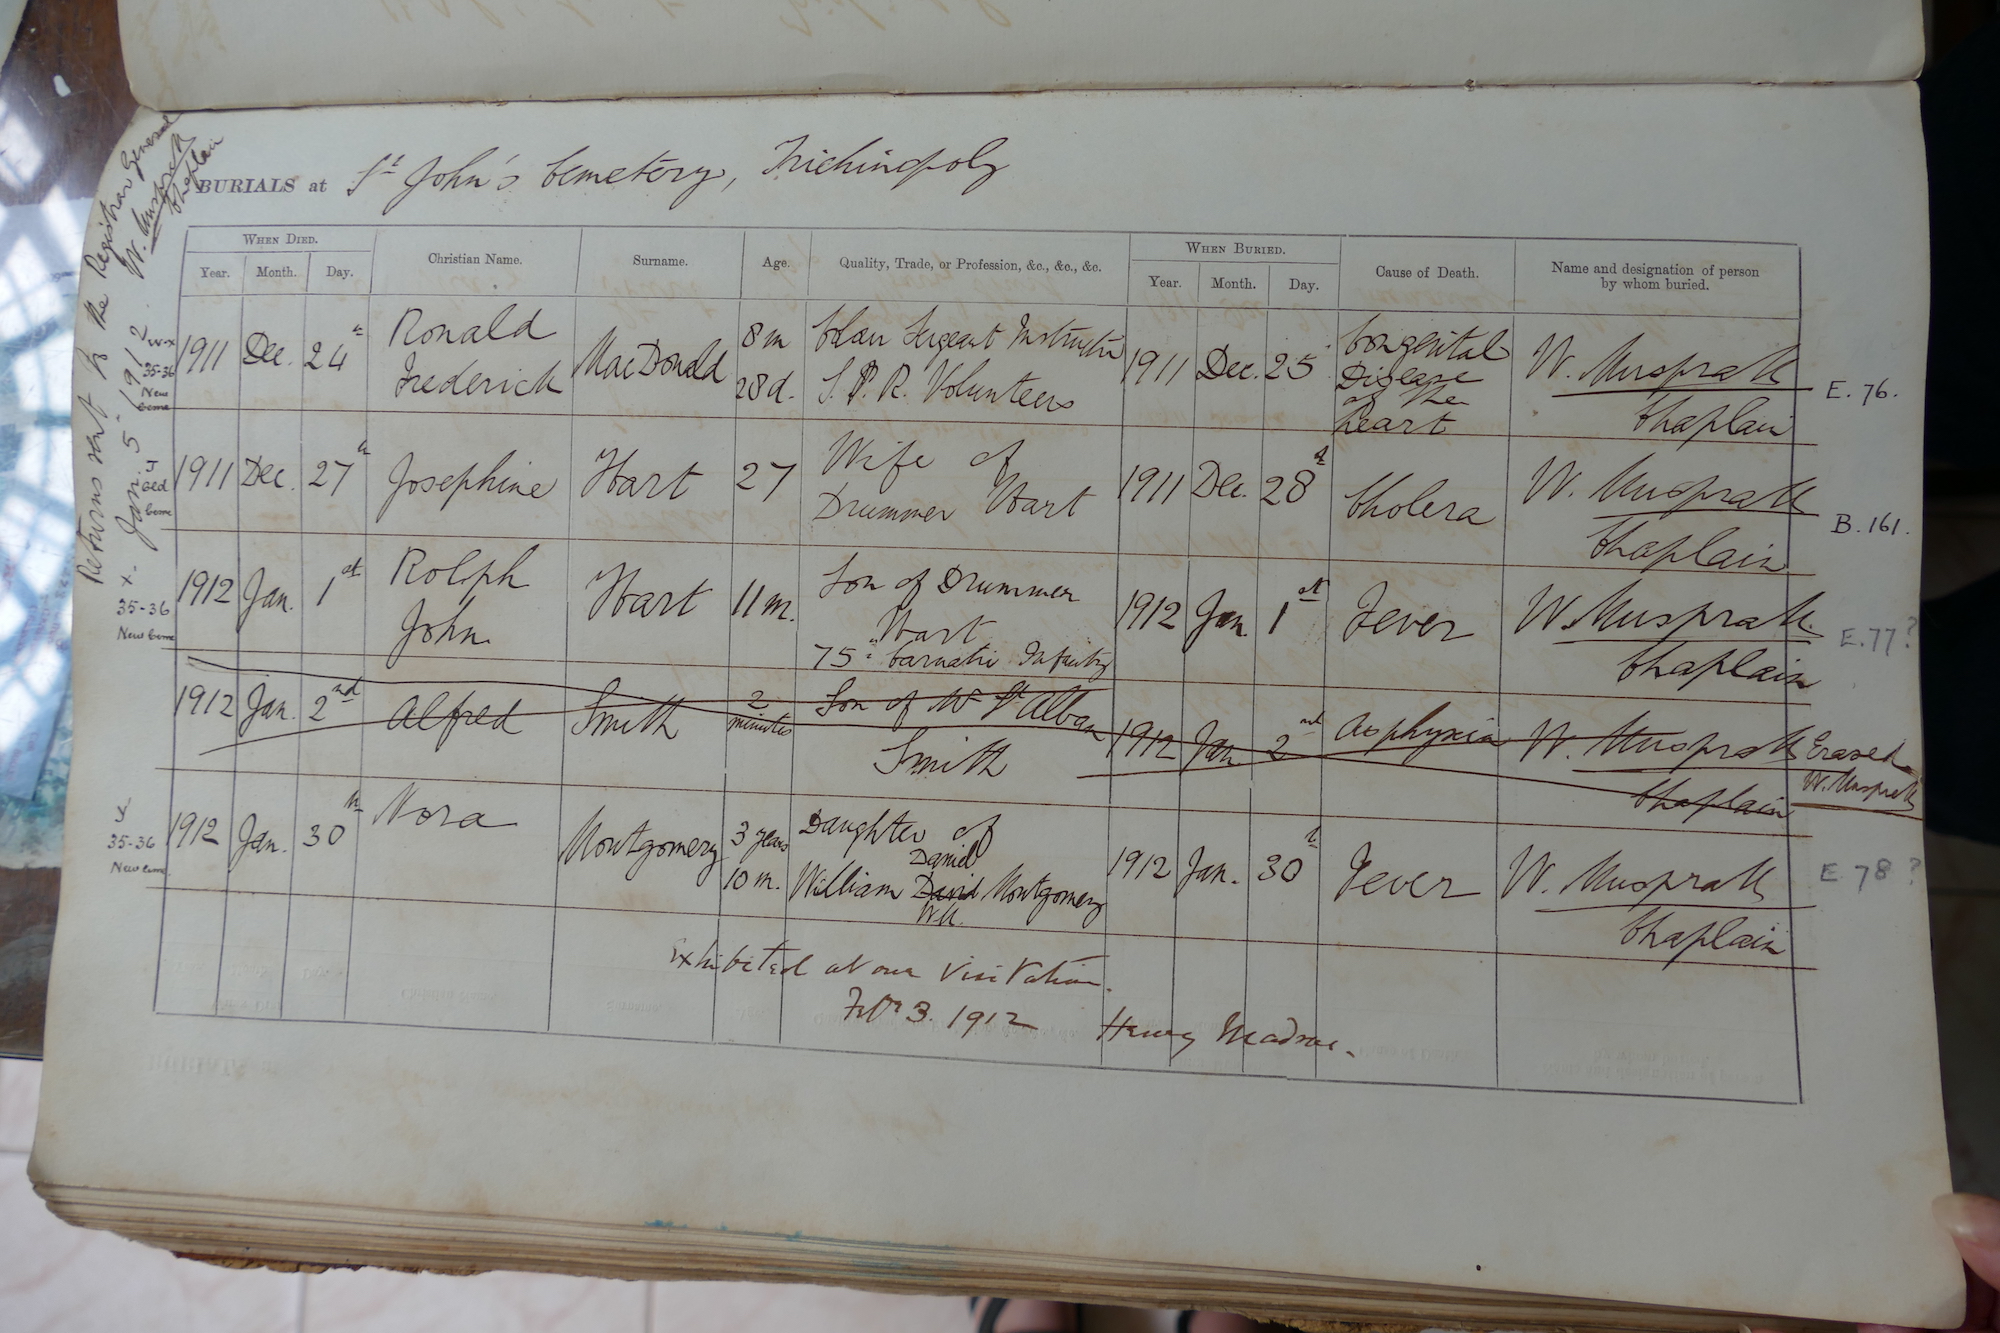 Returns sent to the Registrar General
Jan. 5th 1912. W. Muspratt
Chaplain
BURIALS at St John's Cemetery, Trichinopoly
WHEN DIED. Christian Name. Surname. Age. Quality, Trade, or Profession, &c., &c., &c. WHEN BURIED. Cause of Death. Name and designation of person by whom buried.
Year. Month. Day. Year. Month. Day.
35-36
New
1911 Dec. 24th Ronald Frederick MacDonald 8 m 28 d. Colour Sergeant Instructor S. P. R. Volunteers 1911 Dec. 25 Congenital Disease of the heart W. Muspratt Chaplain E. 76.
Oed
1911 Dec. 27th Josephine Hart 27 Wife of Drummer Hart 1911 Dec. 28th Cholera W. Muspratt Chaplain B. 161.
x.
35-36
New Ceme
1912 Jan. 1st Rolph John Hart 11 m. Son of Drummer Hart 75th Carnatic Infantry 1912 Jan. 1st Fever W. Muspratt Chaplain E. 77?
1912 Jan. 2nd Alfred Smith 2 minutes Son of Mr St Alban Smith 1912 Jan 2nd Asphyxia W. Muspratt Chaplain Erased W. Muspratt
35-36
New Ceme
1912 Jan. 30th Nora Montgomery 3 years 10 m. Daughter of William David Daniel Montgomery 1912 Jan. 30th Fever W. Muspratt Chaplain E 78?
W.M.
Exhibited at our Visitation.
Feby 3. 1912 Henry Madras.